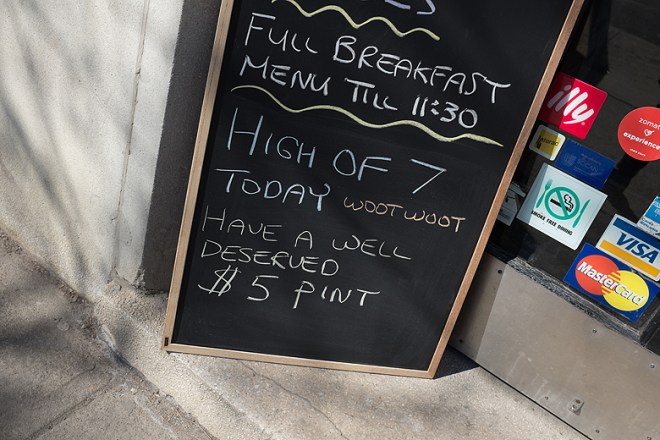 FULL BREAKFAST
MENU TILL 11:30
HIGH OF 7
TODAY WOOT WOOT
HAVE A WELL
DESERVED
$5 PINT
illy
zomato
experience
SMOKE FREE DINING
VISA
MasterCard